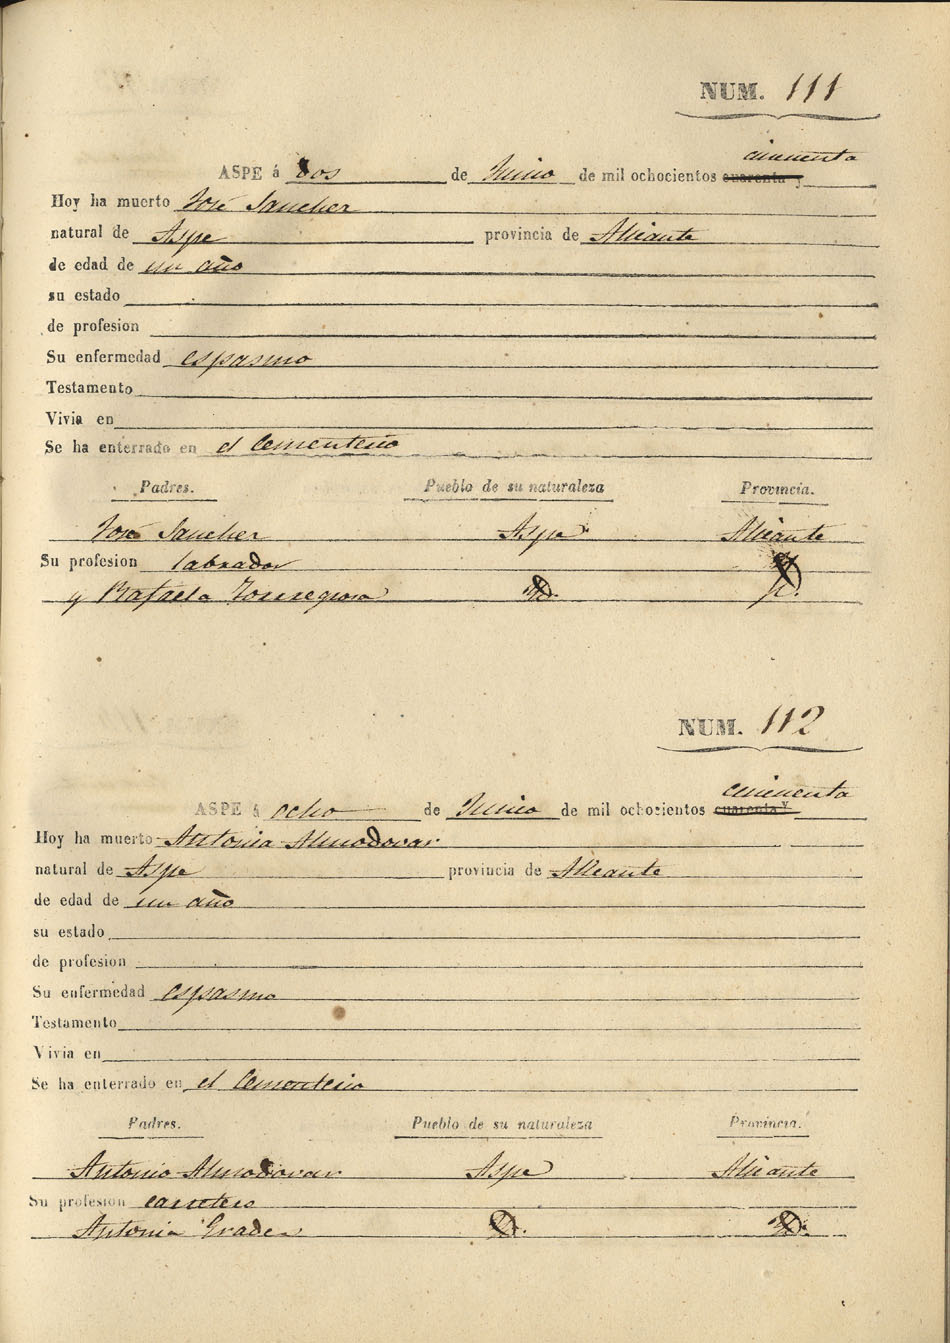 NUM. 111
cincuenta
ASPE á dos de Junio de mil ochocientos cuarenta y
Hoy ha muerto José Sanchez
natural de Aspe provincia de Alicante
de edad de un año
su estado
de profesion
Su enfermedad espasmo
Testamento
Vivia en
Se ha enterrado en el Cementerio
Padres. Pueblo de su naturaleza Provincia.
José Sanchez Aspe Alicante
Su profesion labrador
y Rafaela Torregrosa
NUM. 112
cincuenta
ASPE á ocho de Junio de mil ochocientos cuarenta y
Hoy ha muerto Antonia Almodovar
natural de Aspe provincia de Alicante
de edad de un año
su estado
de profesion
Su enfermedad espasmo
Testamento
Vivia en
Se ha enterrado en el Cementerio
Padres. Pueblo de su naturaleza Provincia.
Antonio Almodovar Aspe Alicante
Su profesion carretero
Antonia